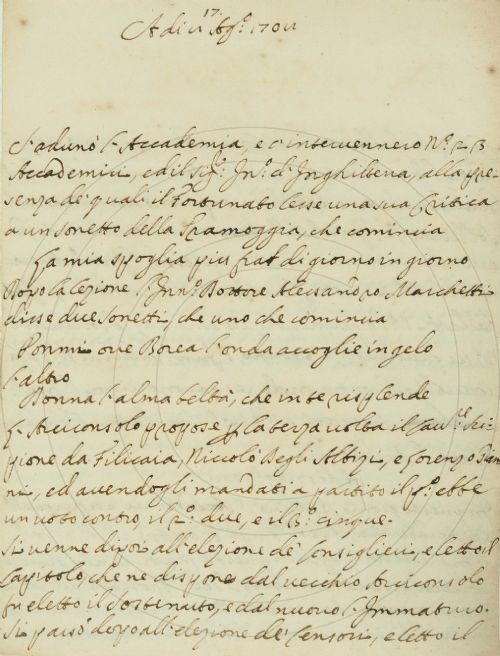 Adi 17 Ag.º 170
S'adunò l'Accademia, e c'interuennero N.º 23
Accademici, ed il Sig.r In.º d'Inghilterra, alla pre=
senza de' quali il Fortunato lesse una sua Critica
a un sonetto della Tramoggia, che comincia
La mia spoglia piu fral di giorno in giorno
Dopo la lezione l'Inn. Dottore Alessandro Marchetti
disse due sonetti, che uno che comincia
Ponmi oue Borea l'onda accoglie in gelo
l'altro
Donna l'alma beltà, che in te risplende
L'Arciconsolo propose p la terza uolta il Cau.re Sci=
pione da Filicaia, Niccolò Degli Albizi, e Lorenzo
ni, ed auendogli mandati a partito il p.º ebbe
un uoto contro, il 2.º due, e il 3.º cinque.
Si uenne dipoi all'elezione de' Consiglieri, e letto il
Capitolo, che ne dispone dal uecchio Arciconsolo
fu eletto il Sostenuto, e dal nuouo l'Immaturo.
Si passò dopo all'elezione de' Censori, e letto il